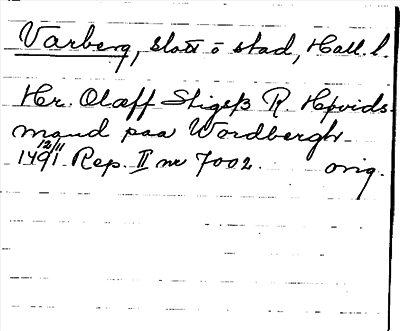 Varberg, slott o stad, Hall. l.
Hr. Olæff Stigsß R. Høvids-
mand paa Wordbergh
12/11
1491 Rep. II nr 7002. orig.